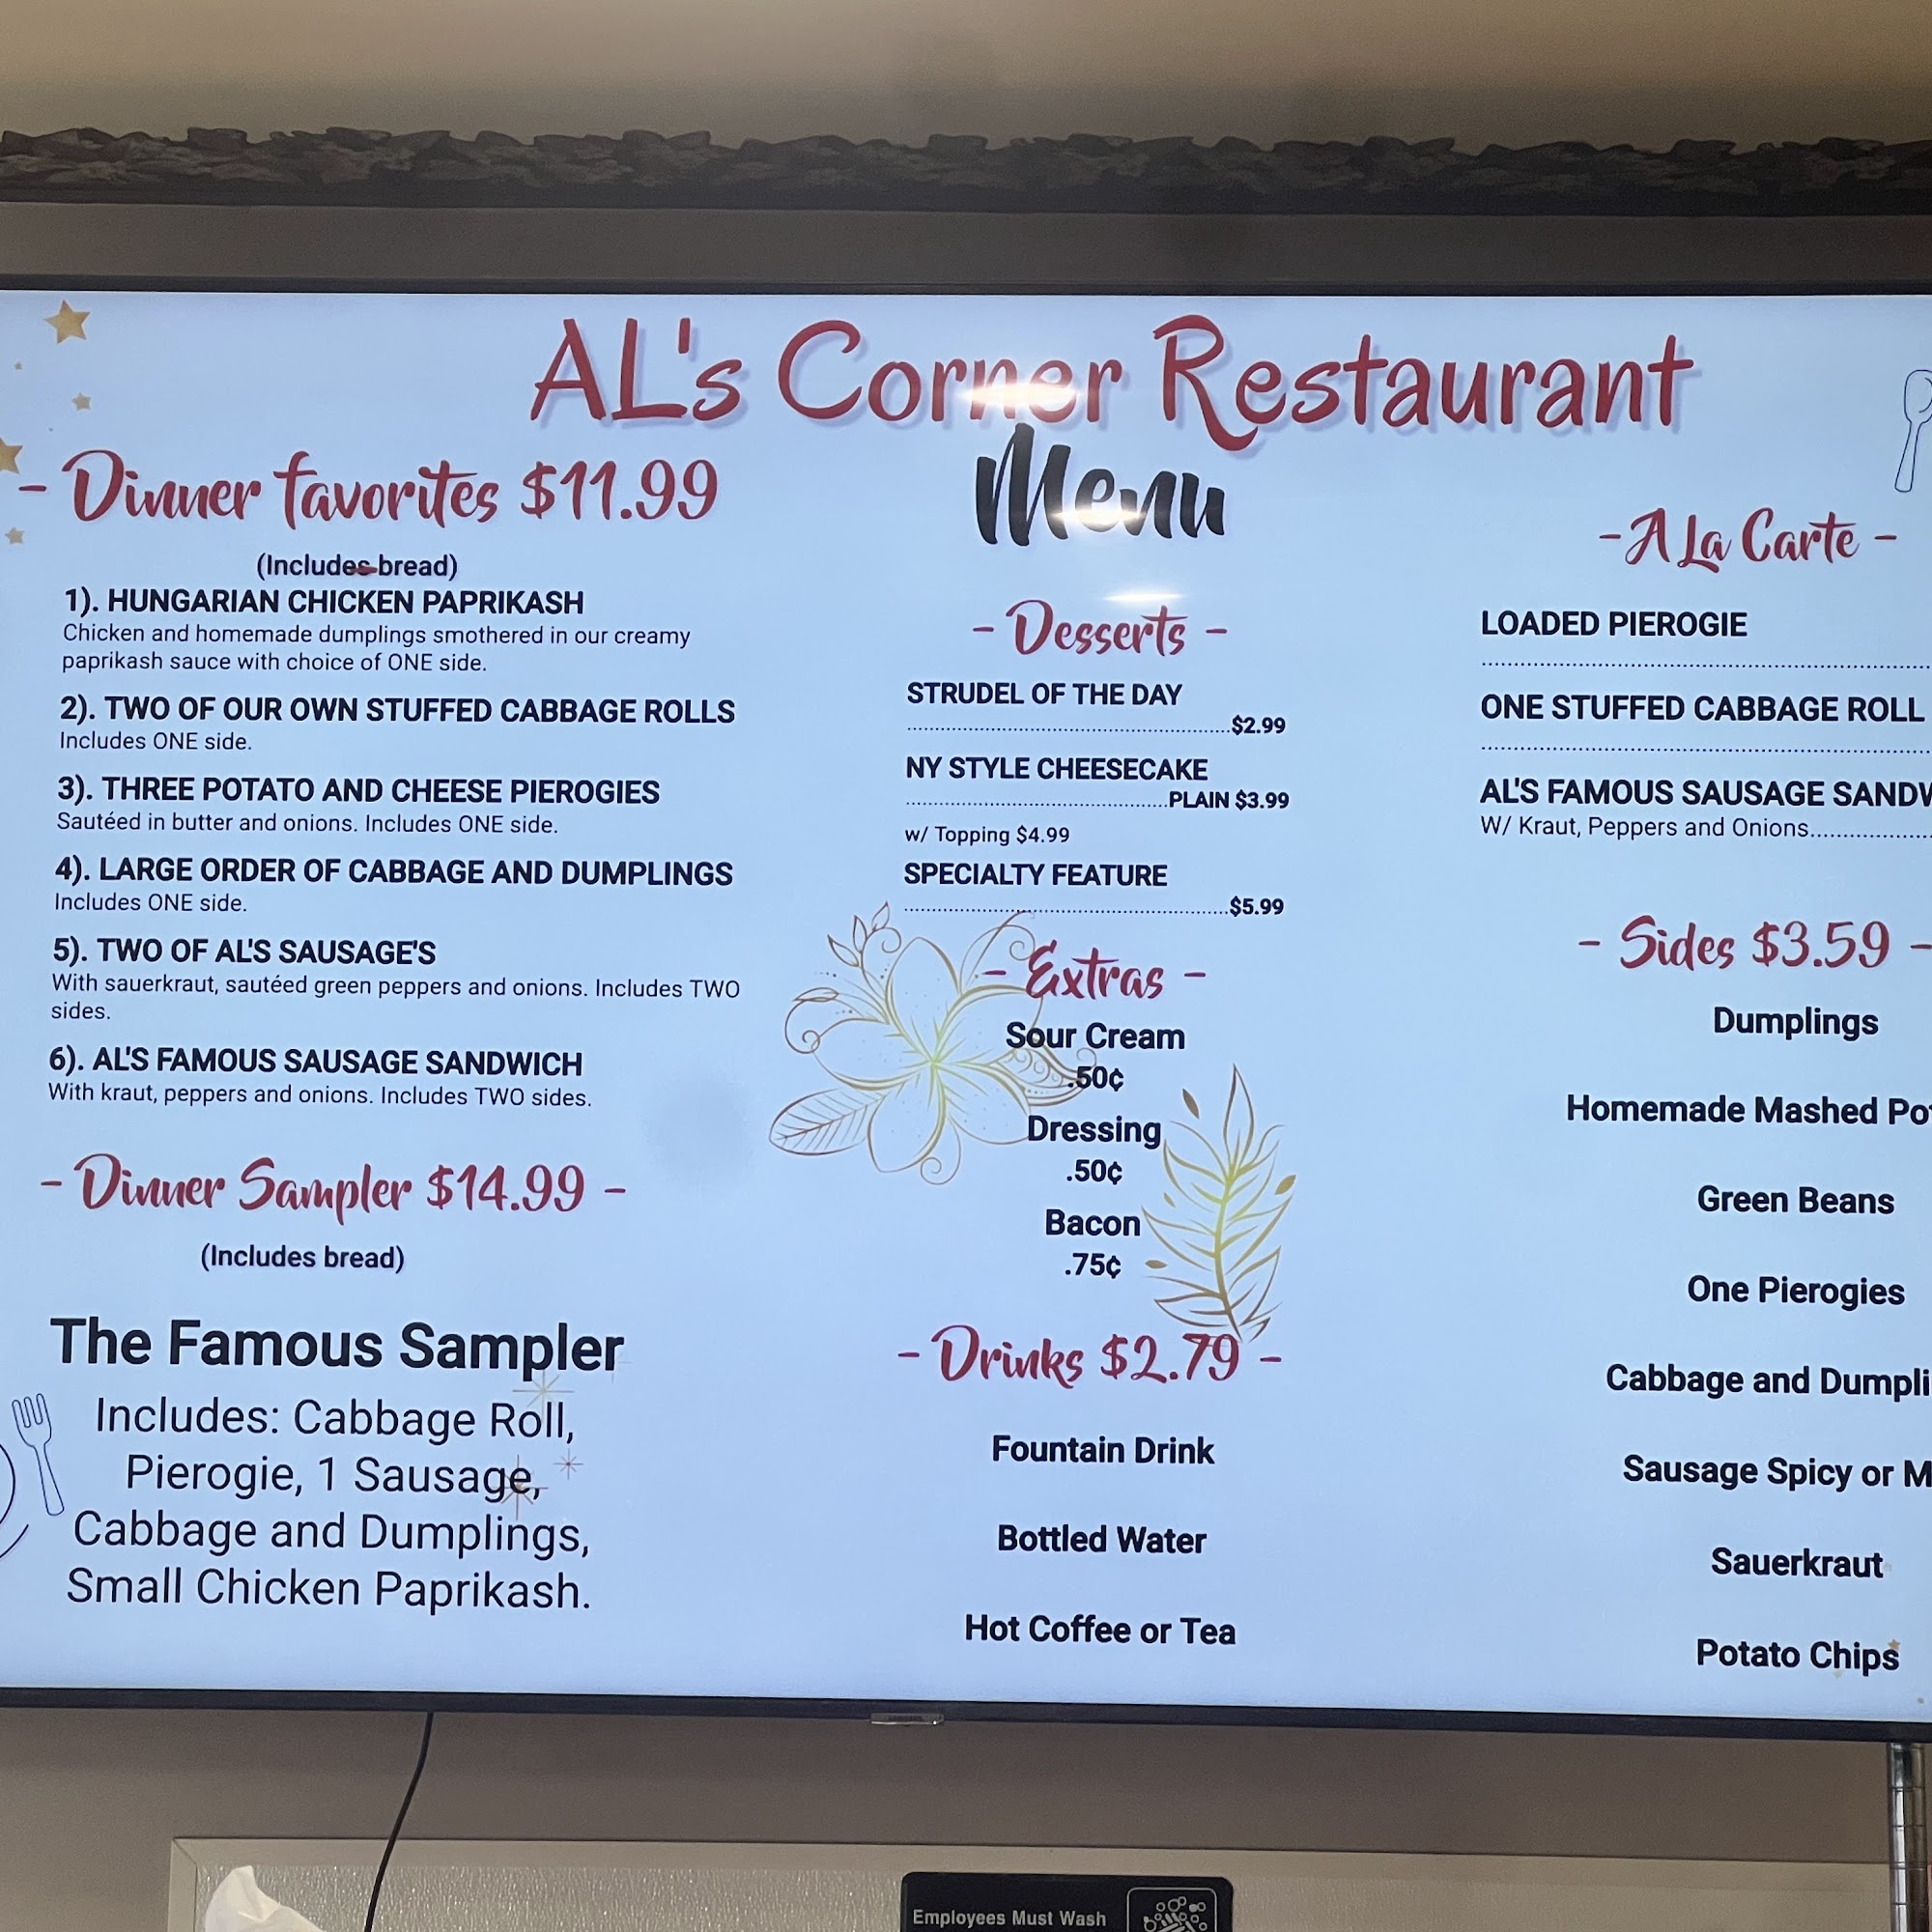 AL's Corner Restaurant
Menu
- Dinner favorites $11.99
(Includes bread)
1). HUNGARIAN CHICKEN PAPRIKASH
Chicken and homemade dumplings smothered in our creamy
paprikash sauce with choice of ONE side.
2). TWO OF OUR OWN STUFFED CABBAGE ROLLS
Includes ONE side.
3). THREE POTATO AND CHEESE PIEROGIES
Sautéed in butter and onions. Includes ONE side.
4). LARGE ORDER OF CABBAGE AND DUMPLINGS
Includes ONE side.
5). TWO OF AL'S SAUSAGE'S
With sauerkraut, sautéed green peppers and onions. Includes TWO
sides.
6). AL'S FAMOUS SAUSAGE SANDWICH
With kraut, peppers and onions. Includes TWO sides.
- Dinner Sampler $14.99 -
(Includes bread)
The Famous Sampler
Includes: Cabbage Roll,
Pierogie, 1 Sausage,
Cabbage and Dumplings,
Small Chicken Paprikash.
- Desserts -
STRUDEL OF THE DAY
$2.99
NY STYLE CHEESECAKE
PLAIN $3.99
w/ Topping $4.99
SPECIALTY FEATURE
$5.99
- Extras -
Sour Cream
.50¢
Dressing
.50¢
Bacon
.75¢
- Drinks $2.79 -
Fountain Drink
Bottled Water
Hot Coffee or Tea
- A La Carte -
LOADED PIEROGIE
ONE STUFFED CABBAGE ROLL
AL'S FAMOUS SAUSAGE SANDW
W/ Kraut, Peppers and Onions
- Sides $3.59 -
Dumplings
Homemade Mashed Po
Green Beans
One Pierogies
Cabbage and Dumpli
Sausage Spicy or M
Sauerkraut
Potato Chips
Employees Must Wash